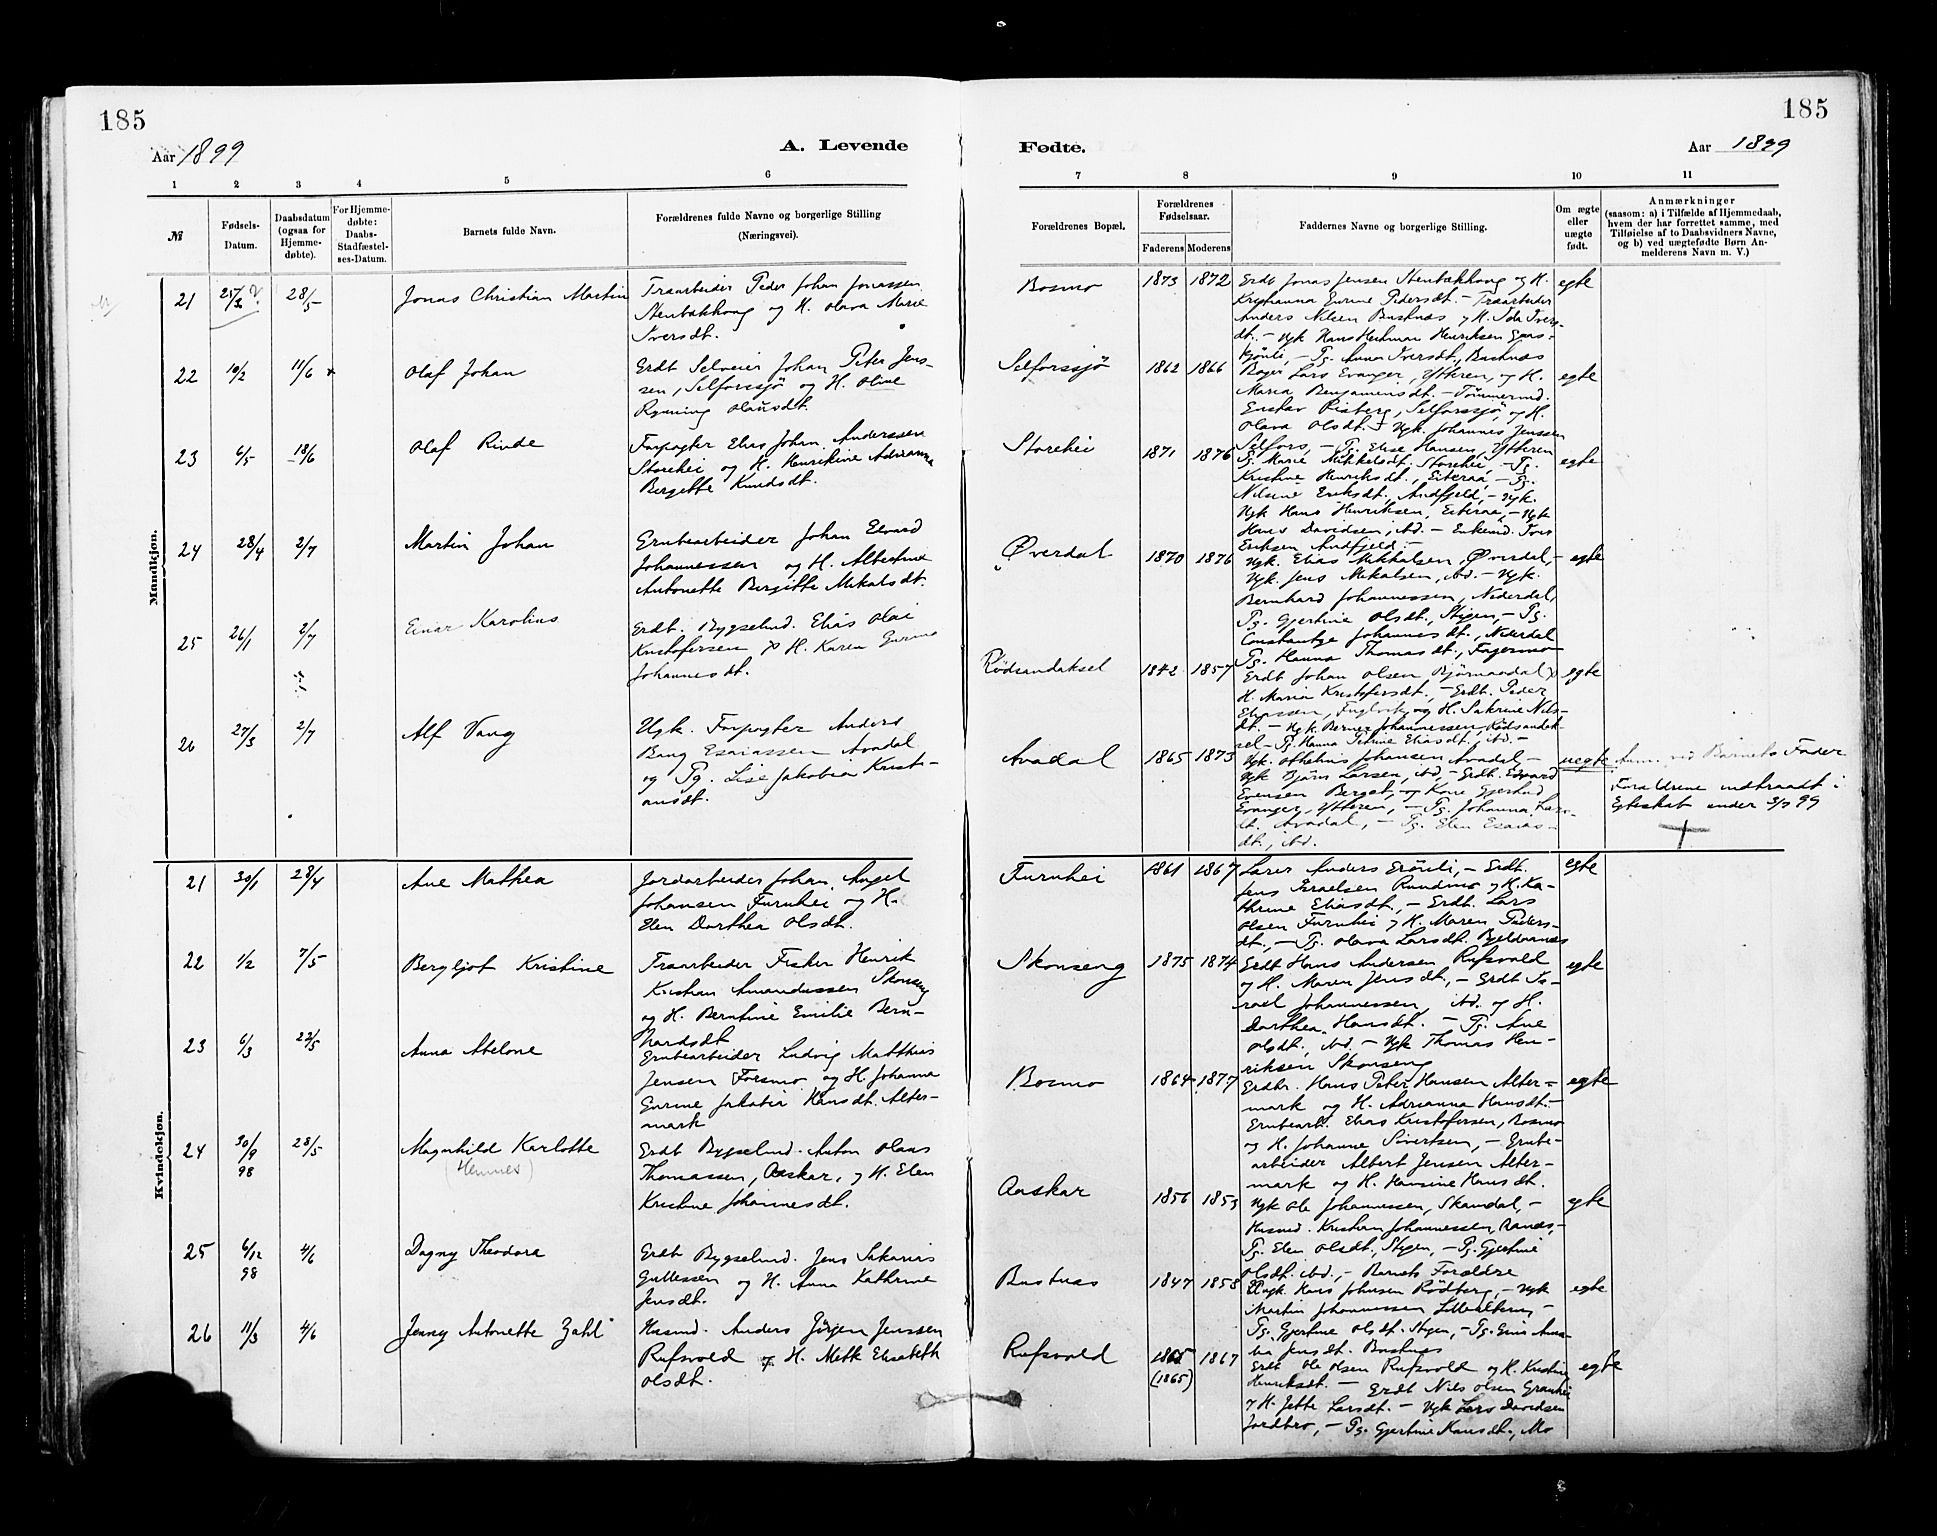 185
185
Aar 1899
A. Levende
Fødte.
Aar 1899
1 2 3 4 5 6
7 8 9 10 11
№
Fødsels-
Datum.
Daabsdatum
(ogsaa for
Hjemme-
døbte).
For Hjemme-
døbte:
Daabs-
Stadfæstel-
ses-Datum.
Barnets fulde Navn.
Forældrenes fulde Navne og borgerlige Stilling
(Næringsvei).
Forældrenes Bopæl.
Forældrenes
Fødselsaar.
Faderens Moderens
Faddernes Navne og borgerlige Stilling.
Om ægte
eller
uægte
født.
Anmærkninger
(saasom: a) i Tilfælde af Hjemmedaab,
hvem der har forrettet samme, med
Tilføielse af to Daabsvidners Navne,
og b) ved uægtefødte Børn An-
melderens Navn m. V.)
Mandkjøn.
21 25/3 28/5 Jonas Christian Martin
Træarbeider Peder Johan Jonassen
Stenbækhaug og H. Olava Marie
Iversdt.
Bosmo 1873 1872
Erdt Jonas Jensen Stenbækhaug og H.
Anders Nilsen Bustnæs & H. Ida Ivers-
dt. – Ugk Hans Herman Henriksen
– Pg. Anna Iversdt., Bustnæs
egte
22 10/2 11/6 Olaf Johan
Erdt Selveier Johan Peter Jens-
sen, Selforssjø og H. Oline
Rynning Olausdt.
Selforssjø 1862 1866
Lars Evanger, Ytteren, og H.
Maria Benjaminsdt. – Tømmermd.
Gustav Risberg, Selforssjø, og H.
Olava Olsdt. – Ugk. Johannes Jenssen
Selfors, – Pg. Elise Hansen, Ytteren
egte
23 6/5 18/6 Olaf Rinde
Forpagter Elias Johan Anderssen
Storehei og H. Henrikine Adrianna
Bergitte Knudsdt.
Storehei 1871 1876
Pg. Marie Mikkelsdt. Storehei, – Pg.
Kristine Henriksdt., Eiteraa, – Pg.
Nilsine Eriksdt., Andfjeld, – Ugk.
Ugk Hans Henriksen, Eiteraa, – Ugk
Hans Davidsen, ibd. – Enkemd. Iver
Eriksen Andfjeld. –
egte
24 28/4 2/7 Martin Johan
Grubearbeider Johan Edvard
Johannessen og H. Albertine
Antonette Bergitte Mikalsdt.
Øverdal 1870 1876
Ugk. Elias Mikkalsen, Øverdal, –
Ugk. Jens Mikalsen, ibd. – Ugk.
Bernhard Johannessen, Nederdal,
Pg. Gjertine Olsdt., Stigen, – Pg.
Constantse Johannesdt., Nederdal
Pg. Hanna Thomasdt., Fagermo
egte
25 26/1 2/7 Einar Karolius
Erdt. Bygselmd. Elias Olai
Kristofersen & H. Karen Gurine
Johannesdt.
Rødsandaksel 1842 1857
Erdt Johan Olsen, Bjørnaadal &
H. Maria Kristofersdt., – Erdt. Peder
Eliassen, Fuglvik, og H. Sakrine Nils-
dt. – Ugk. Berner Johannessen, Rødsandak-
sel – Pg. Hanna Petrine Eliasdt., ibd. –
egte
26 27/3 2/7 Alf Vang
Ugk. Forpagter Anders
Bang Esaiassen Avadal
og Pg. Lise Jakobia Kristi-
ansdt.
Avadal 1865 1873
Ugk. Othelius Johansen Avadal, –
Ugk Bjørn Larsen, ibd, – Erdt. Edvard
Evensen Berget, og Kone Gjertrud
Evanger, Ytteren, – Pg. Johanna Lars-
dt. Avadal, – Pg. Elen Esaias-
dt., ibd.
uegte
Anm. ved Barnets Fader
Forældrene indtraadt i
Egteskab under 3/7 99
Kvindekjøn.
21 30/1 28/4 Ane Mathea
Jordarbeider Johan Angel
Johansen Furuhei og H.
Elen Dorthea Olsdt.
Furuhei 1861 1867
Lærer Anders Grønli, – Erdt.
Jens Israelsen Rundmo & H. Ka-
thrine Eliasdt., – Erdt. Lars
Olsen Furuhei & H. Maren Peders-
dt., – Pg. Olava Larsdt.
egte
22 1/2 7/5 Bergljot Kristine
Træarbeider Fisker Henrik
Kristian Amandussen Skonseng
og H. Berntine Emilie Bern-
hardsdt
Skonseng 1875 1874
Erdt Hans Andersen Rufsvold
og H. Maren Jensdt., – Erdt Is-
rael Johannessen, ibd. og H.
Dorthea Hansdt. – Pg. Ane
Olsdt., ibd – Ugk Thomas Hen-
riksen Skonseng
egte
23 6/3 22/5 Anna Abelone
Grubearbeider Ludvig Matthias
Jensen Forsmo og H. Johanna
Gurine Jakobia Hansdt. Alter-
mark
Bosmo 1864 1877
Erdbr. Hans Peter Hansen Alter-
mark og H. Adrianna Hansdt. –
Grubearb. Elias Kristofersen, Bosmo
og H. Johanne Sivertsen, – Grube-
arbeider Albert Jensen Alter-
mark og H. Hansine Hansdt.
egte
24 30/9 98 28/5 Magnhild Karlotte
(Hemnes)
Erdt Bygselmd. Anton Olaus
Thomassen, Aaskar, & H. Elen
Kristine Johannesdt.
Aaskar 1856 1853
Ugk Ole Johannessen, Skamdal, –
Husmd. Kristian Johannessen,
Pg. Elen Olsdt., Stigen, – Pg. Gjertine
Olsdt. ibd, – Barnets Forældre
egte
25 6/12 98 4/6 Dagny Theodora
Erdt Bygselmd. Jens Sakarias
Gullessen og H. Anna Kathrine
Jensdt.
Bustnæs 1847 1858
Ugk. Hans Johnsen Rødberg, – Ugk
Martin Johannessen
Pg. Gjertine Olsdt. Stigen, – Pg.
Jensdt. Bustnæs
egte
26 11/3 4/6 Jenny Antonette Zahl
Husmd. Anders Jörgen Jenssen
Rufsvold & H. Mette Elisabeth
Olsdt.
Rufsvold 1865 1867
(1865)
Erdt Ole Olsen Rufsvold og H. Kristine
Henriksdt. – Erdt Nils Olsen Granhei
& H. Jette Larsdt. – Ugk Lars Davidsen
Jordbro, – Pg. Gjertine Hansdt., Mo
egte